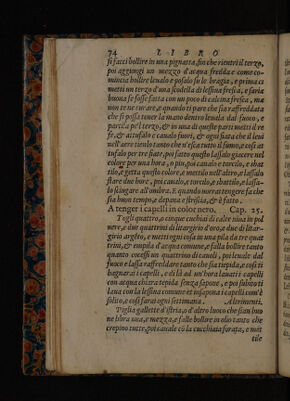 74 LIBRO
si facci bollire in una pignatta, fin che rientri il terzo,
poi aggiongi un mezzo d'acqua fredda e come co-
mincia bollire leualo e posalo su le bragia, e prima ci
metti un terzo d'una scodella di lessina fresca, e saria
buona se fosse fatta con un poco di calcina fresca, ma
non te ne curare, e quando ti pare che sia raffreddata
che si possa tener la mano dentro leuala dal fuoco, e
partila pe'l terzo, & in una di queste parti metti il ve
lo, & attufalo e canalo fuori, & ogni fiata che il leui
nell'aere tienlo tanto che n'esca tutto il fumo, e cosi at
tufalo per tre fiate, poi fatto questo lassalo giacere nel
colore per una hora, o piu, poi canalo e torcilo, e sbat
tilo, e getta questo colore, e mettilo nell'altro, e lassalo
stare due hore, poi canalo, e torcilo, e sbattilo, e lassa-
lo sciugare all'ombra. E quando vorrai tengere fa che
sia buon tempo, depana e striscia, & è fatto.
A tenger i capelli in color nero. Cap. 25.
Togli quattro, o cinque cuchiai di calce viua in pol
uere, e due quattrini di litargirio d'oro, e due di litar-
girio argēto, e metti ogni cosa in una pila da tre quat
trini, & empila d'acqua comune, e falla bollire tanto
quanto cocessi un quattrino di cauoli, poi leuale dal
fuoco e lassa raffreddare tanto che sia tepida, e cosi ti
bagnarai i capelli, ed i là ad un'hora lauati i capelli
con acqua chiara tepida senza sapone, e poi subito ti
laua con la lessina comune et insapona i capelli com'è
solito, e cosi farai ogni settimana. Altrimenti.
Piglia gallette d'istria, o d'altro luoco che sian buo
ne libra una, e mezza, e falle bollire in olio tanto che
crepino tutte, poi canale cō la cucchiaia forata, e met
tile